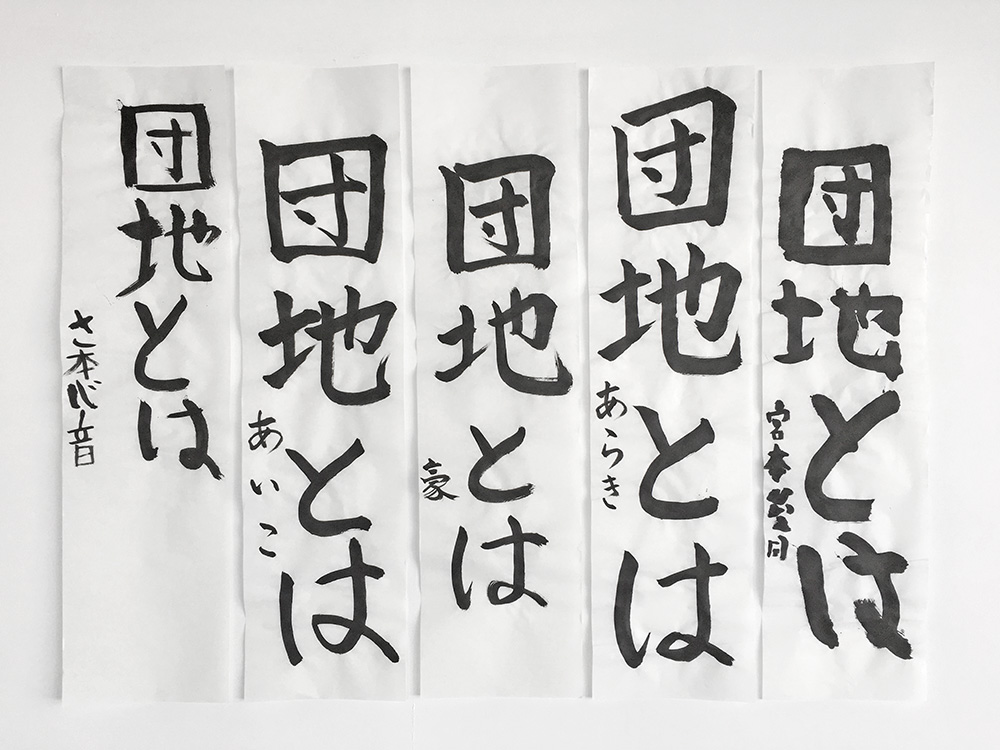 団地とは
宮本
団地とは
あらき
団地とは
豪
団地とは
あいこ
団地とは
さ本心音